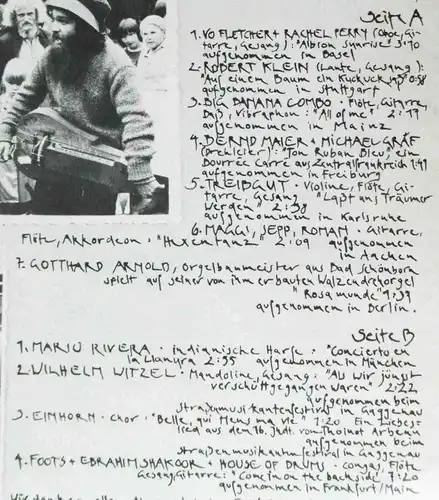 Seite A
1. VO FLETCHER + RACHEL PERRY (Oboe, Gi-
tarre, Gesang): "Albion Sunrise" 3'10
aufgenommen in Basel
2. ROBERT KLEIN (Laute, Gesang):
"Auf einem Baum ein Kuckuck saß" 0'58
aufgenommen in Stuttgart
3. BIG BANANA COMBO · Flöte, Gitarre,
Baß, Vibraphon: "All of me" 2'19
aufgenommen in Mainz
4. BERND MAIER + MICHAEL GRÄF
(Drehleier): "Ton Ruban Bleu", ein
Bourrée Carre aus Zentralfrankreich 1'49
aufgenommen in Freiburg
5. TREIBGUT · Violine, Flöte, Gi-
tarre, Gesang "Laßt uns Träumer
werden" 2'38
aufgenommen in Karlsruhe
6. MAGGI, SEPP, ROMAN · Gitarre,
Flöte, Akkordeon · "Hexentanz" 2'09 aufgenommen
in Aachen
7. GOTTHARD ARNOLD, Orgelbaumeister aus Bad Schönborn
spielt auf seiner von ihm erbauten Walzendrehorgel
"Rosamunde" 1'39
aufgenommen in Berlin.
Seite B
1. MARIO RIVERA · indianische Harfe: "Concierto en
la Llanura 2'35 aufgenommen in München
2. WILHELM WITZEL · Mandoline, Gesang: "Als wir jüngst
verschütt gegangen waren" 2'22
aufgenommen beim
Straßenmusikantenfestival in Gaggenau
3. EINHORN · Chor: "Belle, qui tiens ma vie" 1'20 Ein Liebes-
lied aus dem 16. Jhdt. von Thoinot Arbeau
aufgenommen beim
Straßenmusikantenfestival in Gaggenau
4. FOOTS + EBRAHIM SHAKOOR + HOUSE OF DRUMS · Congas, Flöte
Gesang, Gitarre: "Comin on the backside" 7'20
aufgenommen in Frankfurt/Main